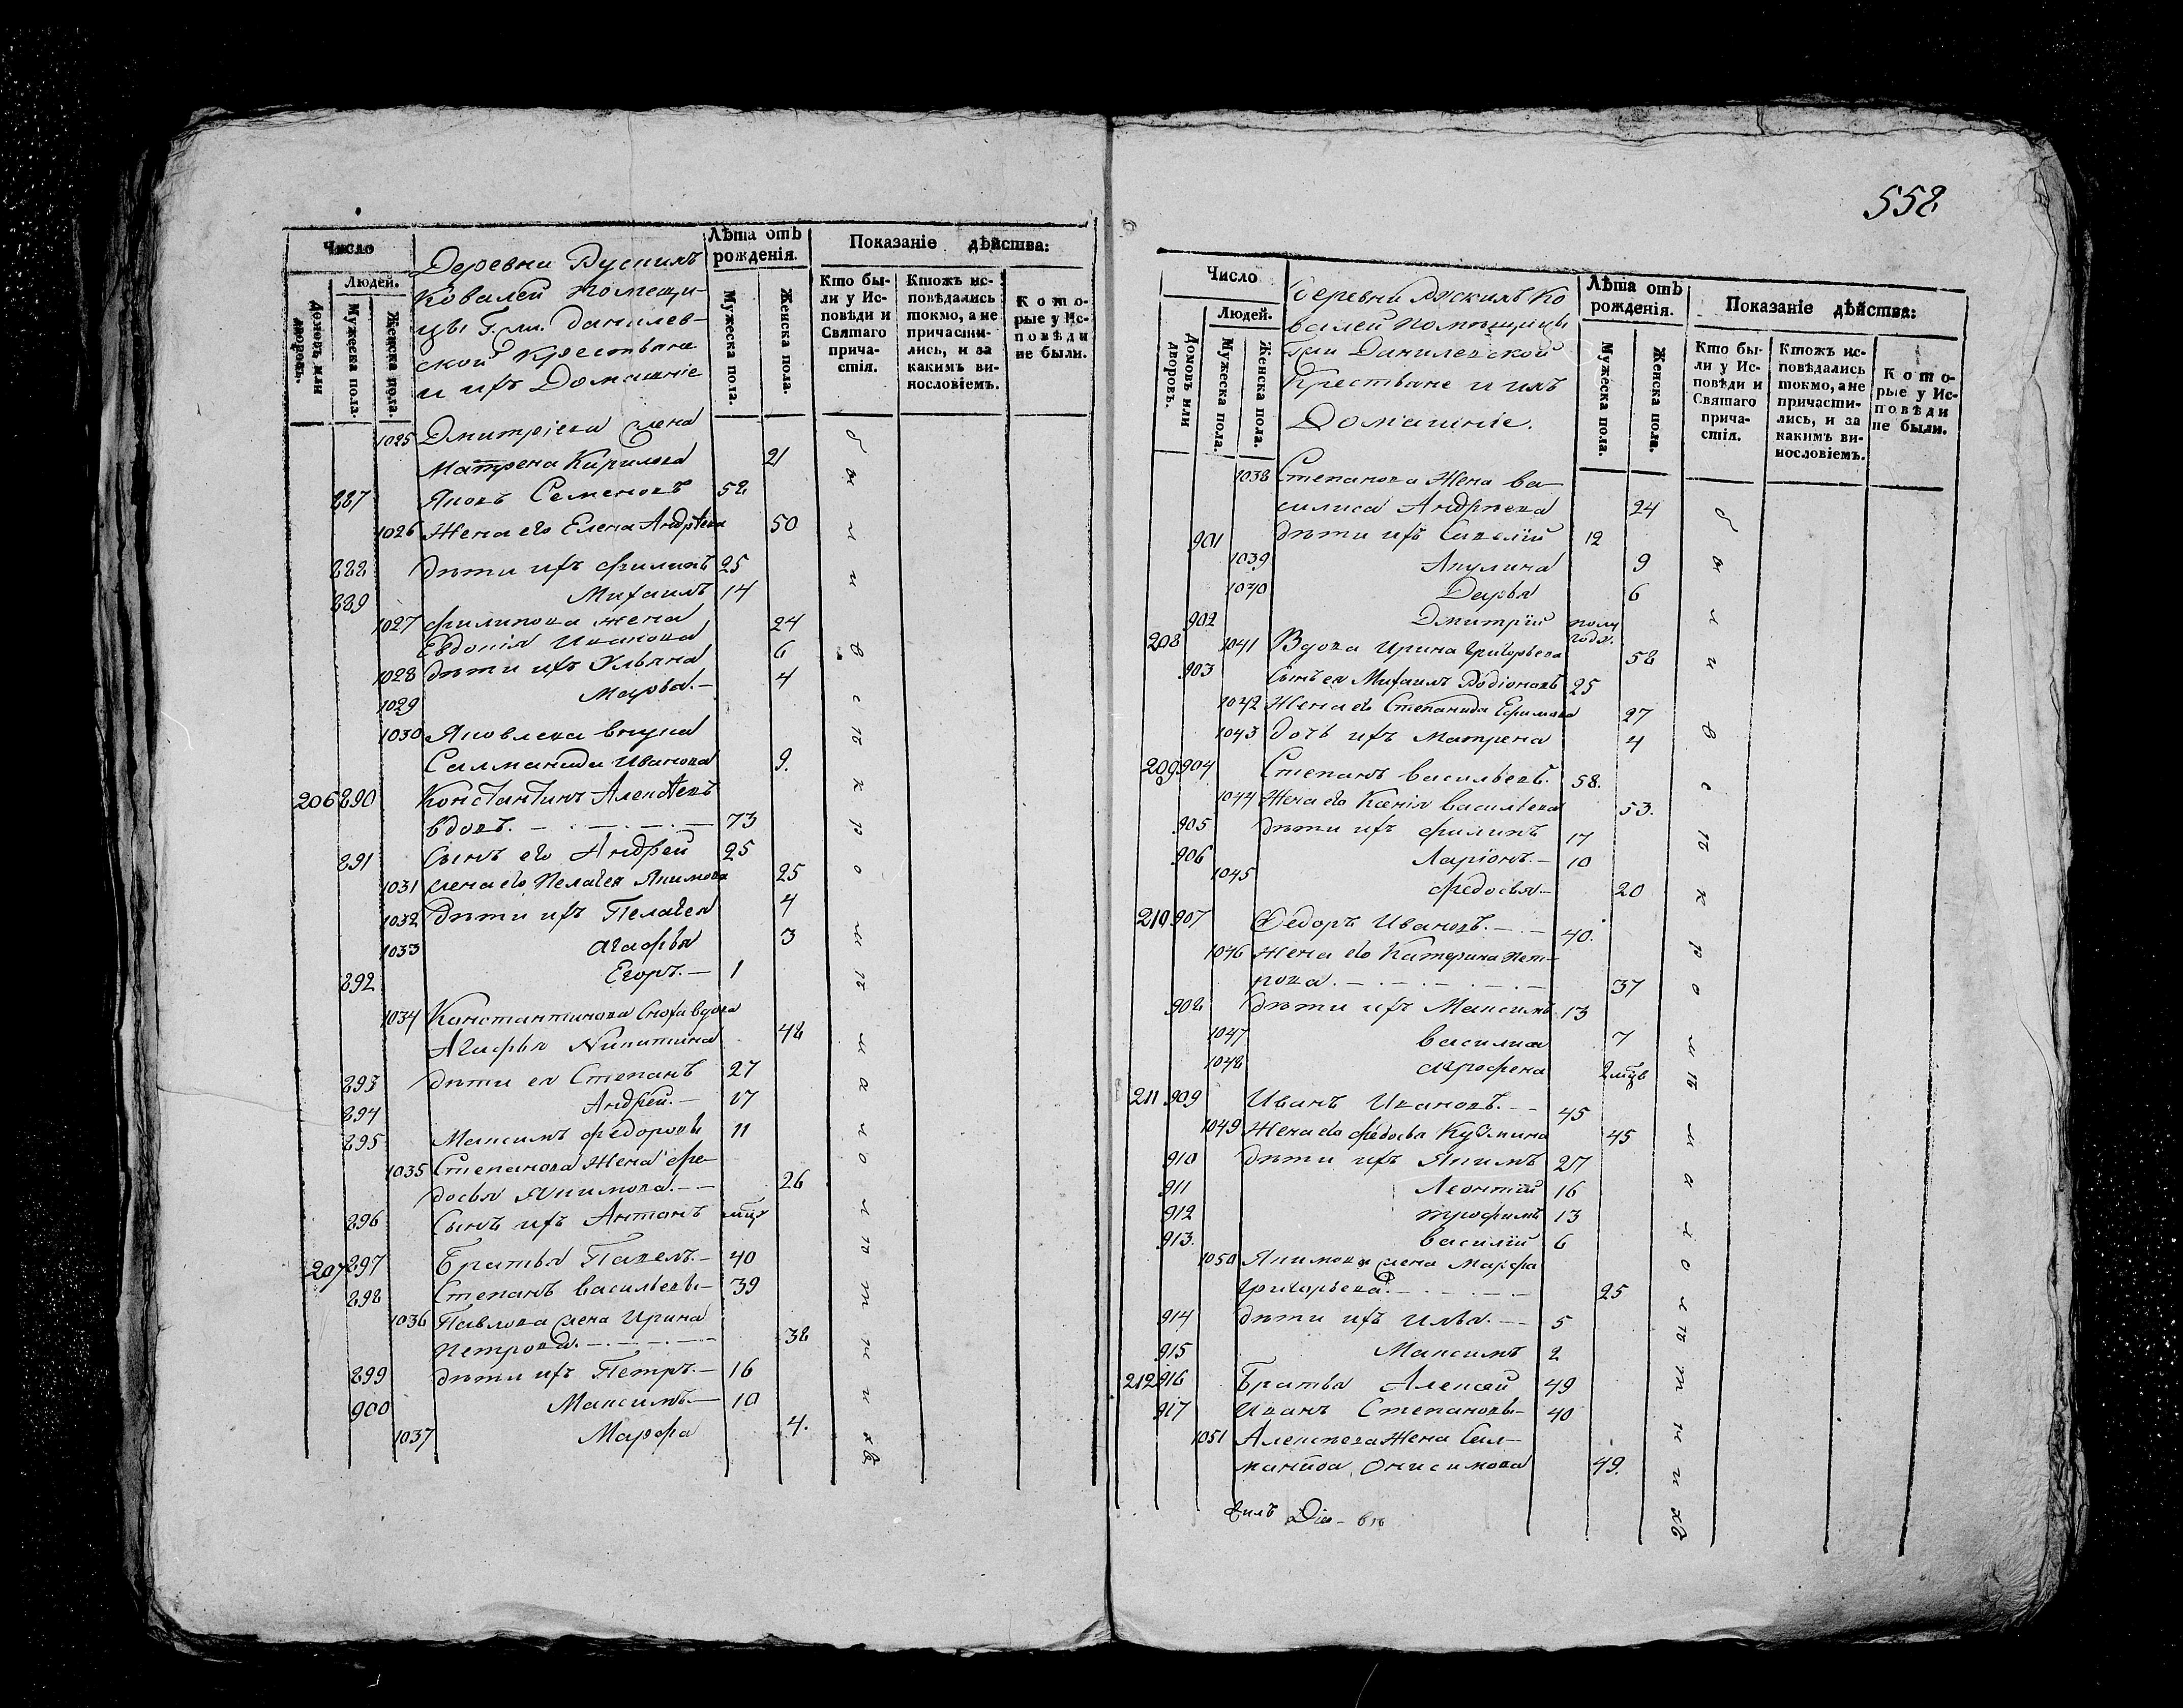 558
Число
Людей.
Домовъ или дворовъ.
Мужеска пола.
Женска пола.
Деревни Рускихъ
Ковалей помещи-
цы Г.жи Данилев-
ской крестьяне
и ихъ Домашніе
Лѣта отъ
рожденія.
Мужеска пола.
Женска пола.
Показаніе дѣйства:
Кто бы-
ли у Ис-
повѣди и
Святаго
прича-
стія.
Ктожъ ис-
повѣдались
токмо, а не
причасти-
лись, и за
какимъ ви-
нословіемъ.
Кото-
рые у Ис-
повѣди
не были.
1025 Дмитріева жена
Матрена Кирилова 21
887 Яковъ Семеновъ 58
1026 Жена его Елена Андрѣева 50
888 дѣти ихъ Филипъ 25
889 Михаилъ 14
1027 Филипова жена
Евдокія Иванова 24
1028 дѣти ихъ Ульяна 6
1029 Марѳа.- 4
1030 Яковлева внука
Саламанида Иванова 9.
206 890 Константинъ Алексѣевъ
вдовъ. 73
891 Сынъ его Андрей 25
1031 жена его Пелагея Якимова 25
1032 Дѣти ихъ Пелагея 4
1033 Агафья 3
892 Егоръ.- 1
1034 Константинова сноха вдова
Агафья Никитина 48
893 дѣти ея Степанъ 27
894 Андрей.- 17
895 Максимъ Федоровы 11
1035 Степанова жена Фе-
досья Якимова.- 26
896 Сынъ ихъ Антонъ
207 897 Братья Павелъ.- 40
898 Степанъ Васильевы- 39
1036 Павлова жена Ирина
Петрова. 38
899 дѣти ихъ Петръ.- 16
900 Максимъ.- 10
1037 Марфа 4.
были в с ѣ к р о м ѣ м а л о л ѣ т н и хъ
Число
Людей.
Домовъ или дворовъ.
Мужеска пола.
Женска пола.
Деревни Рускихъ Ко
валей помѣщицы
Г.жи Данилевской
Крестьяне и ихъ
Домашніе.
Лѣта отъ
рожденія.
Мужеска пола.
Женска пола.
Показаніе дѣйства:
Кто бы-
ли у Ис-
повѣди и
Святаго
прича-
стія.
Ктожъ ис-
повѣдались
токмо, а не
причасти-
лись, и за
какимъ ви-
нословіемъ.
Кото-
рые у Ис-
повѣди
не были.
1038 Степанова Жена Ва-
силиса Андрѣева 24
901 дѣти ихъ Савелій 12
1039 Акулина 9
1040 Дарья 6
902 Дмитрій полу
года.
208 1041 Вдова Ирина Григорьева 58
903 Сынъ ея Михаилъ Родіоновъ 25
1042 Жена его Степанида Ефимова 27
1043 дочь ихъ Матрена 4
209 904 Степанъ Васильевъ. 58.
1044 Жена его Ксенія Васильева 53.
905 дѣти ихъ Филипъ 17
906 Ларіонъ.- 10
1045 Федосья.- 20
210 907 Федоръ Ивановъ. 40.
1046 Жена его Катерина Пет-
рова. 37
908 дѣти ихъ Максимъ 13
1047 Василиса 7
1048 Агрофена 2 мцъ
211 909 Иванъ Ивановъ. 45
1049 Жена его Федосья Кузмина 45
910 дѣти ихъ Якимъ 27
911 Леонтій 16
912 Трофимъ 13
913. Василій 6
1050 Якимова жена Марфа
Григорьева. 25
914 дѣти ихъ Илья. 5
915 Максимъ 2
212 916 Братья Алексей 49
917 Иванъ Степановы- 40
1051 Алексѣева Жена Сал-
манида Онисимова 49.
были в с ѣ к р о м ѣ м а л о л ѣ т н и хъ